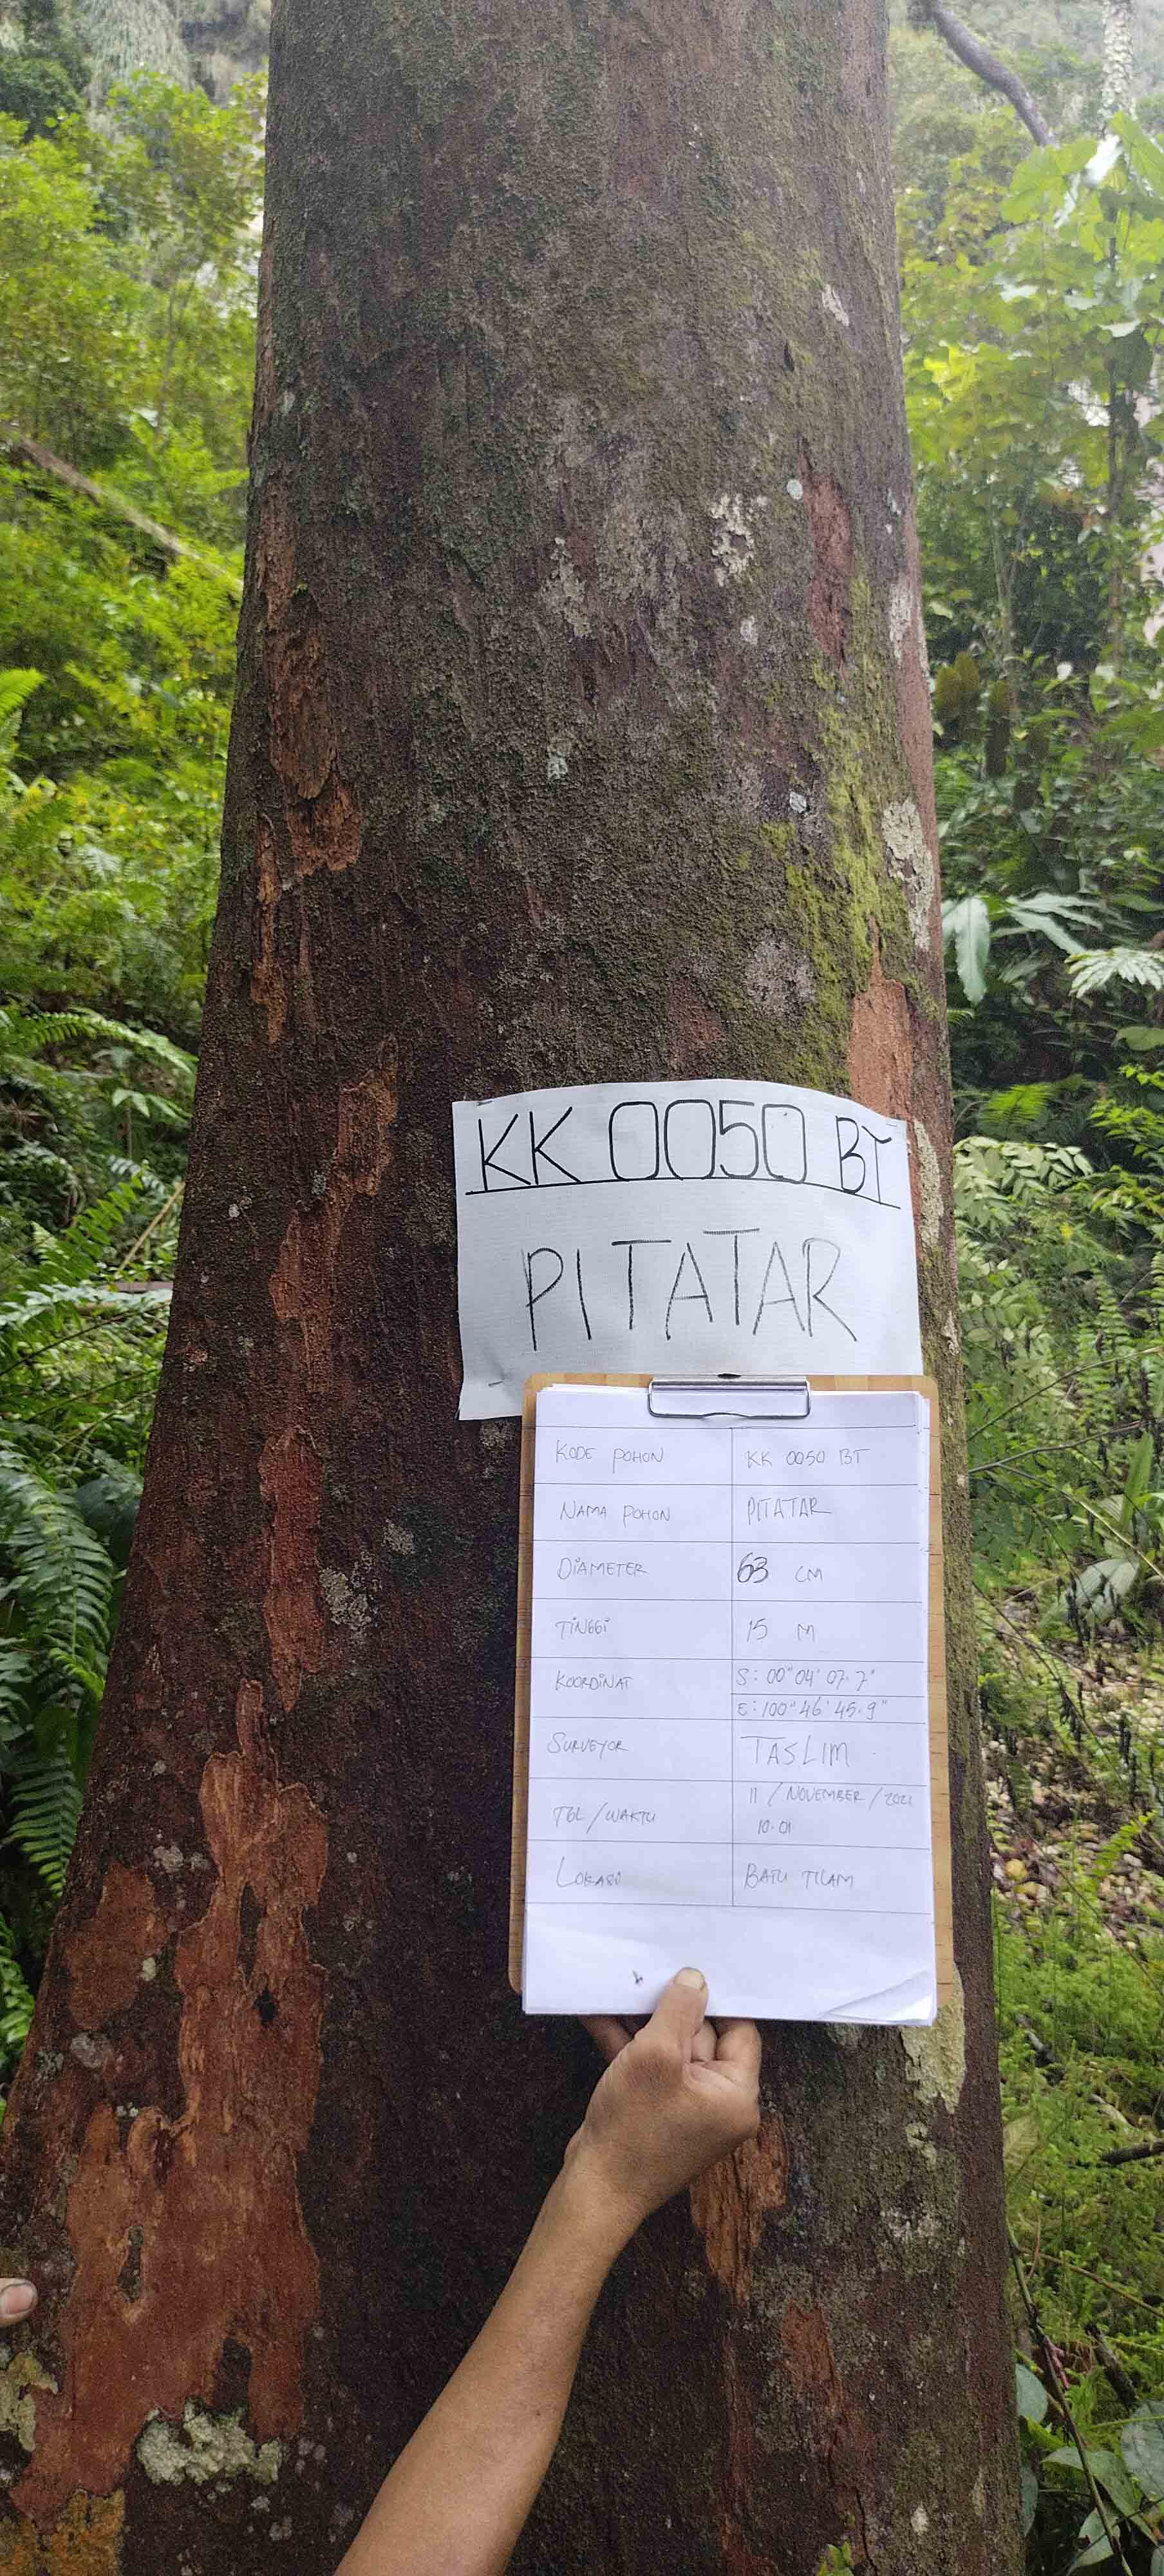 KK 0050 BT
PITATAR
KODE POHON KK 0050 BT
NAMA POHON PITATAR
DIAMETER 63 CM
TINGGI 15 M
KOORDINAT S : 00° 04' 07.7"
E : 100° 46' 45.9"
SURVEYOR TASLIM
TGL / WAKTU 11 / NOVEMBER /
10.01
LOKASI BATU TILAM